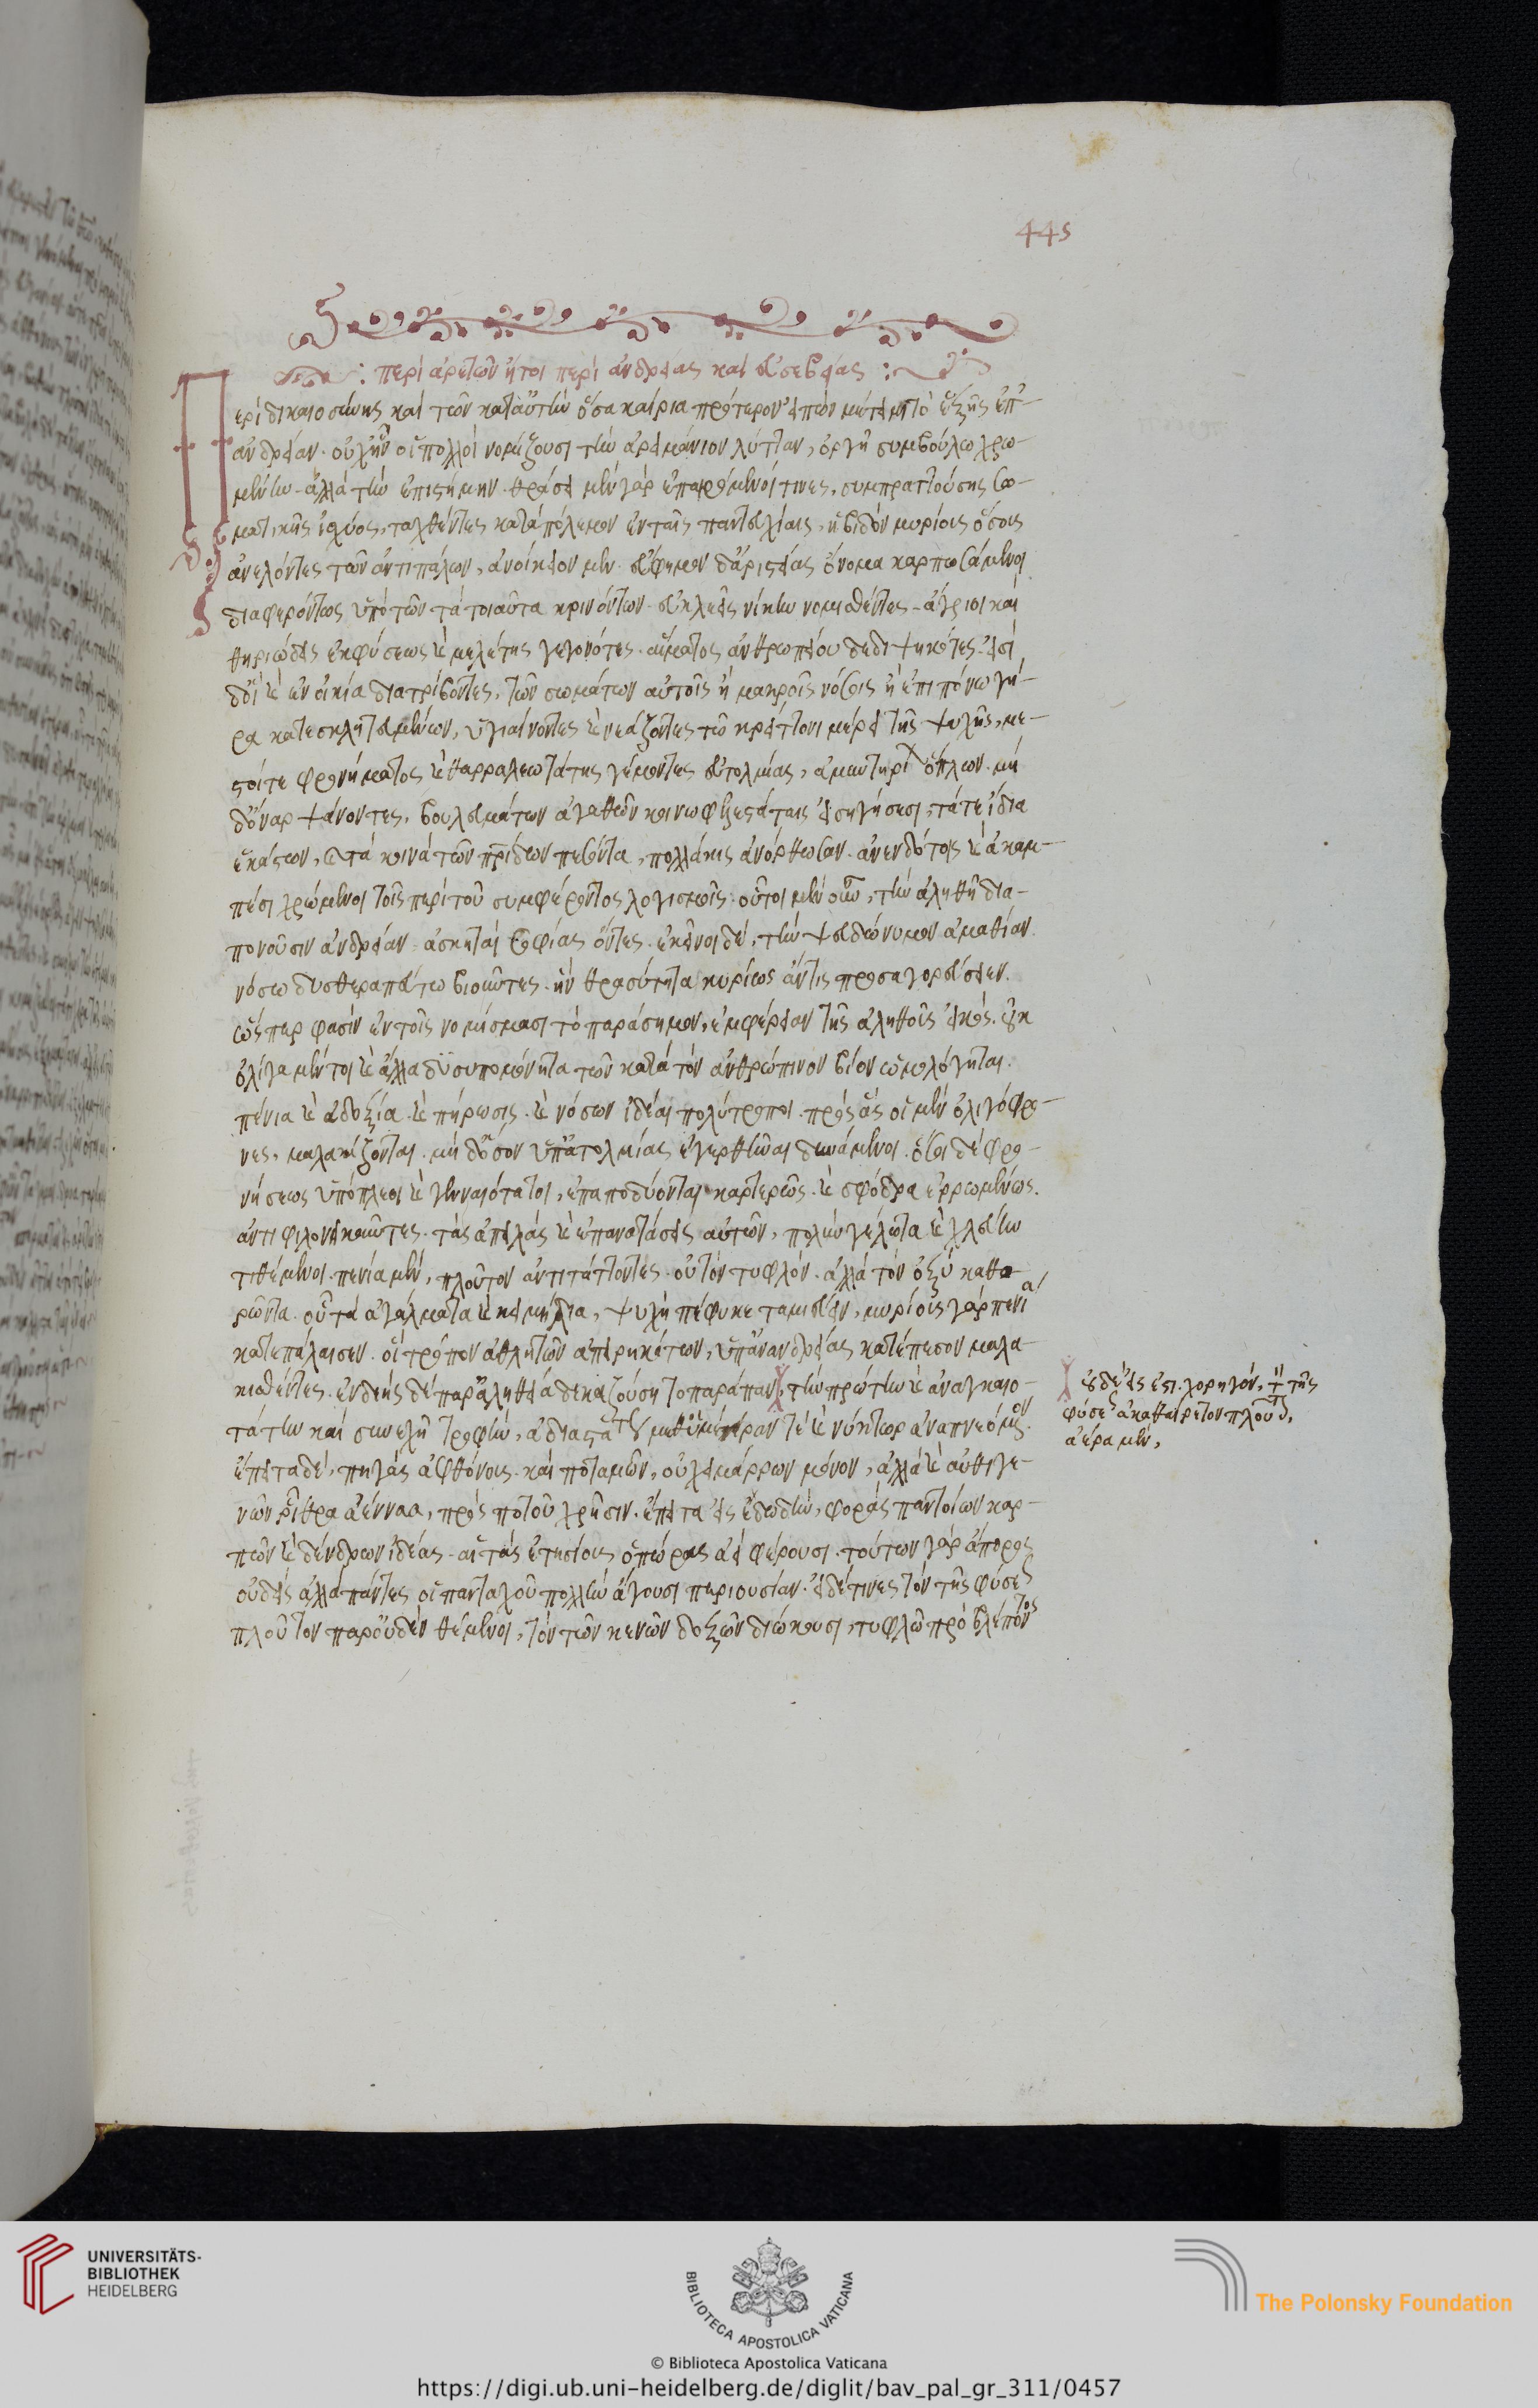 445
περὶ ἀρετῶν ἤτοι περὶ ἀνδρείας καὶ εὐσεβείας :
Περὶ δικαιοσύνης καὶ τῶν κατ' αὐτὴν ὅσα καίρια πρότερον εἰπὼν μέτειμι τὸ ἑξῆς ἐπ'
ἀνδρείαν. οὐχ ἣν οἱ πολλοὶ νομίζουσι τὴν ἀρειμάνιον λύτταν, ὀργῇ συμβούλῳ χρω-
μένην. ἀλλὰ τὴν ἐπιστήμην. θράσει μὲν γὰρ ἐπαιρόμενοί τινες, συμπραττούσης σω-
ματικῆς ἰσχύος, ταχθέντες κατὰ πόλεμον ἐν ταῖς παντευχίαις, ἡβηδὸν μυρίους ὅσους
ἀνελόντες τῶν ἀντιπάλων, ἀνοίκειον μὲν εὔφημον δ' ἀριστείας ὄνομα καρπωσάμενοι
διαφερόντως ὑπὸ τῶν τὰ τοιαῦτα κρινόντων εὐκλεεῖς νίκην νομισθέντες. ἄγριοι καὶ
θηριώδεις ἐκ φύσεως καὶ μελέτης γεγονότες. αἵματος ἀνθρωπείου δεδιψηκότες. εἰσὶ
δ' οἳ καὶ ἐν οἰκίᾳ διατρίβοντες, τῶν σωμάτων αὐτοῖς ἢ μακραῖς νόσοις ἢ ἐπιπόνῳ γή-
ρᾳ κατεσκελετευμένων, ὑγιαίνοντες καὶ νεάζοντες τῷ κρείττονι μέρει τῆς ψυχῆς, με-
στοί τε φρονήματος καὶ θαρραλεωτάτης γέμοντες εὐτολμίας, ἀμυντηρίων ὅπλων. μὴ
δ' ὄναρ ψάνοντες, βουλευμάτων ἀγαθῶν κοινωφελεστάταις εἰσηγήσεσι, τά τε ἴδια
ἑκάστων, καὶ τὰ κοινὰ τῶν πατρίδων πεσόντα, πολλάκις ἀνόρθωσαν. ἀνενδότοις καὶ ἀκαμ-
πέσι χρώμενοι τοῖς περὶ τοῦ συμφέροντος λογισμοῖς. οὗτοι μὲν οὖν, τὴν ἀληθῆ δια-
πονοῦσιν ἀνδρείαν ἀσκηταὶ σοφίας ὄντες. ἐκεῖνοι δέ, τὴν ψευδώνυμον ἀμαθίαν
νόσῳ δυσθεραπεύτῳ βιοῦντες. ἣν θρασύτητα κυρίως ἄν τις προσαγορεύσειεν.
ὥσπερ φασὶν ἐν τοῖς νομίσμασι τὸ παράσημον, ἐμφέρειαν τῆς ἀληθοῦς εἰκός. οὐκ
ὀλίγα μέντοι καὶ ἄλλα δυσυπομόνητα τῶν κατὰ τὸν ἀνθρώπινον βίον ὡμολόγηται.
πένια καὶ ἀδοξία. καὶ πήρωσις. καὶ νόσων ἰδέαι πολύτροποι. πρὸς ἃς οἱ μὲν ὀλιγόφρο-
νες, μαλακίζονται. μὴ δ' ὅσον ὑπ' ἀτολμίας ἐγερθῆναι δυνάμενοι. ὅσοι δὲ φρο-
νήσεως ὑπόπλεοι καὶ γενναιότατοι, ἐπαποδύονται καρτερῶς. καὶ σφόδρα ἐρρωμένως.
ἀντιφιλονεικοῦντες. τὰς ἀπειλὰς καὶ ἐπανατάσεις αὐτῶν, πολὺν γέλωτα καὶ χλεύην
τιθέμενοι. πενίᾳ μὲν, πλοῦτον ἀντιτάττοντες. οὐ τὸν τυφλόν. ἀλλὰ τὸν ὀξὺ καθο-
ρῶντα. οὗ τὰ ἀγάλματα καὶ κειμήλια, ψυχὴ πέφυκε ταμιεύειν, μυρίους γὰρ πενία
κατεπάλαισεν. οἳ τρόπον ἀθλητῶν ἀπειρηκότων, ὑπ' ἀνανδρείας κατέπεσον μαλα-
κισθέντες. ἐνδεὴς δὲ παρ' ἀληθείᾳ δικαζούσῃ τὸ παράπαν, τὴν πρώτην καὶ ἀναγκαιο-
τάτην καὶ συνεχῆ τροφὴν, ἀδιαστάτως μεθ' ἡμέραν τὲ καὶ νύκτωρ ἀναπνεόμενον.
ἔπειτα δέ, πηγὰς ἀφθόνους. καὶ ποταμῶν, οὐ χειμάρρων μόνον, ἀλλὰ καὶ αὐθιγε-
νῶν ῥεῖθρα ἀέννaα, πρὸς ποτοῦ χρῆσιν. ἔπειτα εἰς ἐδωδὴν, φορὰς παντοίων καρ-
πῶν καὶ δένδρων ἰδέας. αἳ τὰς ἐτησίους ὀπώρας ἀεὶ φέρουσι. τούτων γὰρ ἄπορος
οὐδείς ἀλλὰ πάντες οἱ πανταχοῦ πολλὴν ἄγουσι περιουσίαν. εἰ δέ τινες τὸν τῆς φύσεως
πλοῦτον παρ' οὐδὲν θέμενοι, τὸν τῶν κενῶν δοξῶν διώκουσι, τυφλῷ πρὸ βλέποντος
οὐδείς ἐστι. χορηγὸν, ἔχων τὸν τῆς
φύσεως ἀκαθαίρετον πλοῦτον,
ἀέρα μὲν,
UNIVERSITÄTS-
BIBLIOTHEK
HEIDELBERG
BIBLIOTECA APOSTOLICA VATICANA
The Polonsky Foundation
© Biblioteca Apostolica Vaticana
https://digi.ub.uni-heidelberg.de/diglit/bav_pal_gr_311/0457